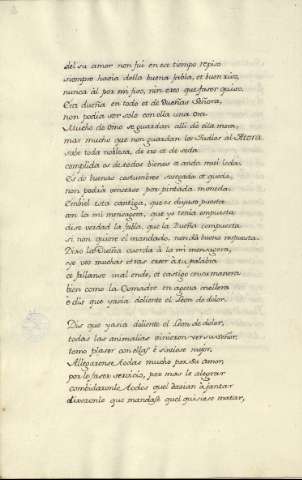 del su amor non fui en ese tiempo repiso
siempre havia della buena fabla, et buen riso,
nunca ál por mi fiso, nin creo que faser quiso.
Era dueña en todo et de Dueñas Señora,
non podia ser solo con ella una ora
Mucho de ome se guardan alli do ella mora,
mas mucho que non guardan los Judios la Atora
sabe toda noblesa, de oro et de seda
complida es de todos bienes et anda mui leda,
Es de buenas costumbres sosegada et queda,
non podria vencerse por pintada moneda.
Embiel esta cantiga, que es deyuso puesta
con la mi mensagera, que yo tenia empuesta
dise verdad la fabla, que la Dueña compuesta
si non quiere el mandado, non dá buena respuesta.
Dixo la Dueña cuerda á la mi mensagera,
yo veo muchas otras creer á tu palabra
et fallanse mal ende, et castigo en su manera
bien como la Comadre en agena mollera
é dis que yasia doliente el Leon de dolor.
Dis que yasia doliente el Leon de dolor,
todas las animalias vinieron ver su señor,
tomo plaser con ellas é sintiose mejor,
Allegraronse todas mucho por su amor,
por le faser servicio, por mas le alegrar
combidaronle todos quel darian á jantar
dixeronle que mandase quel quisiese matar,